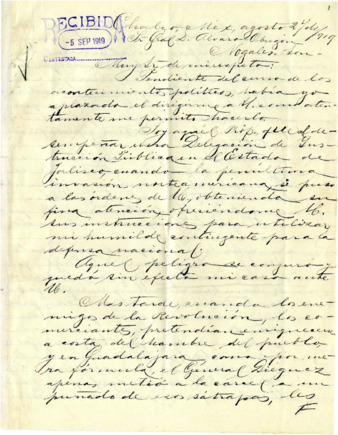 1
RECIBIDA
-5 SEP 1919
CONTESTADA
Mex, agosto 27/de/1919
Sr Gral D. Alvaro Obregón
Nogales, Son.
Muy Sr. de mi respeto:
Pendiente del curso de los
acontecimientos políticos, había yo
aplazado el dirigirme a U. como aten-
tamente me permito hacerlo
Soy aquel que al de-
sempeñar una Delegación de Ins-
trucción Pública en el Estado de
Jalisco, cuando la penúltima
invasión norteamericana, se puso
a las órdenes de U, obteniendo su
fina atención, ofreciéndome U.
sus instrucciones para utilizar
mi humilde contingente para la
defensa nacional:
Aquel peligro se conjuró y
quedó sin efecto mi caso ante
U.
Mas tarde, cuando los ene-
migos de la Revolución, los co-
merciantes, pretendían enriquecerse
a costa del hambre del pueblo
y en Guadalajara, como por me-
ra fórmula el General Dieguez
apenas metió a la cárcel a un
puñado de esos sátrapas, les